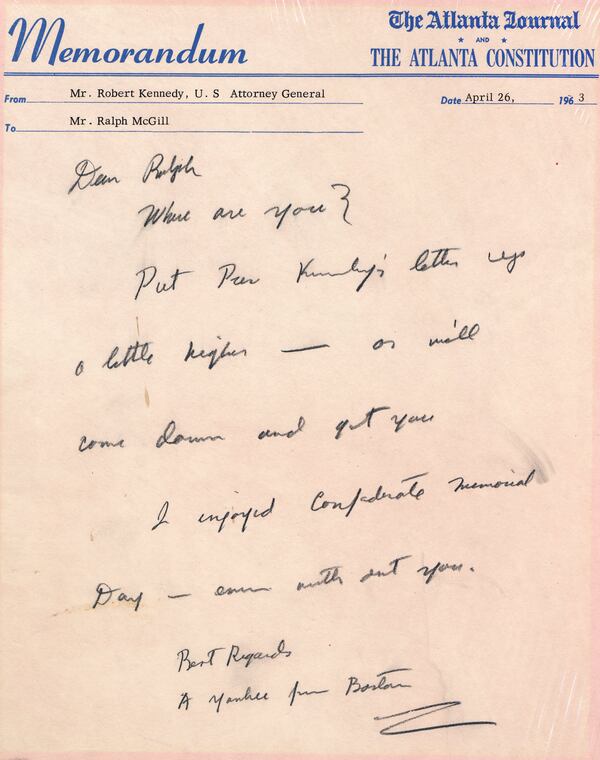 Memorandum
The Atlanta Journal
AND
THE ATLANTA CONSTITUTION
From Mr. Robert Kennedy, U. S Attorney General
Date April 26, 1963
To Mr. Ralph McGill
Dear Ralph
Where are you?
Put Pres Kennedy's letter up
a little higher — or we'll
come down and get you
I enjoyed Confederate Memorial
Day — even with out you.
Best Regards
A Yankee from Boston